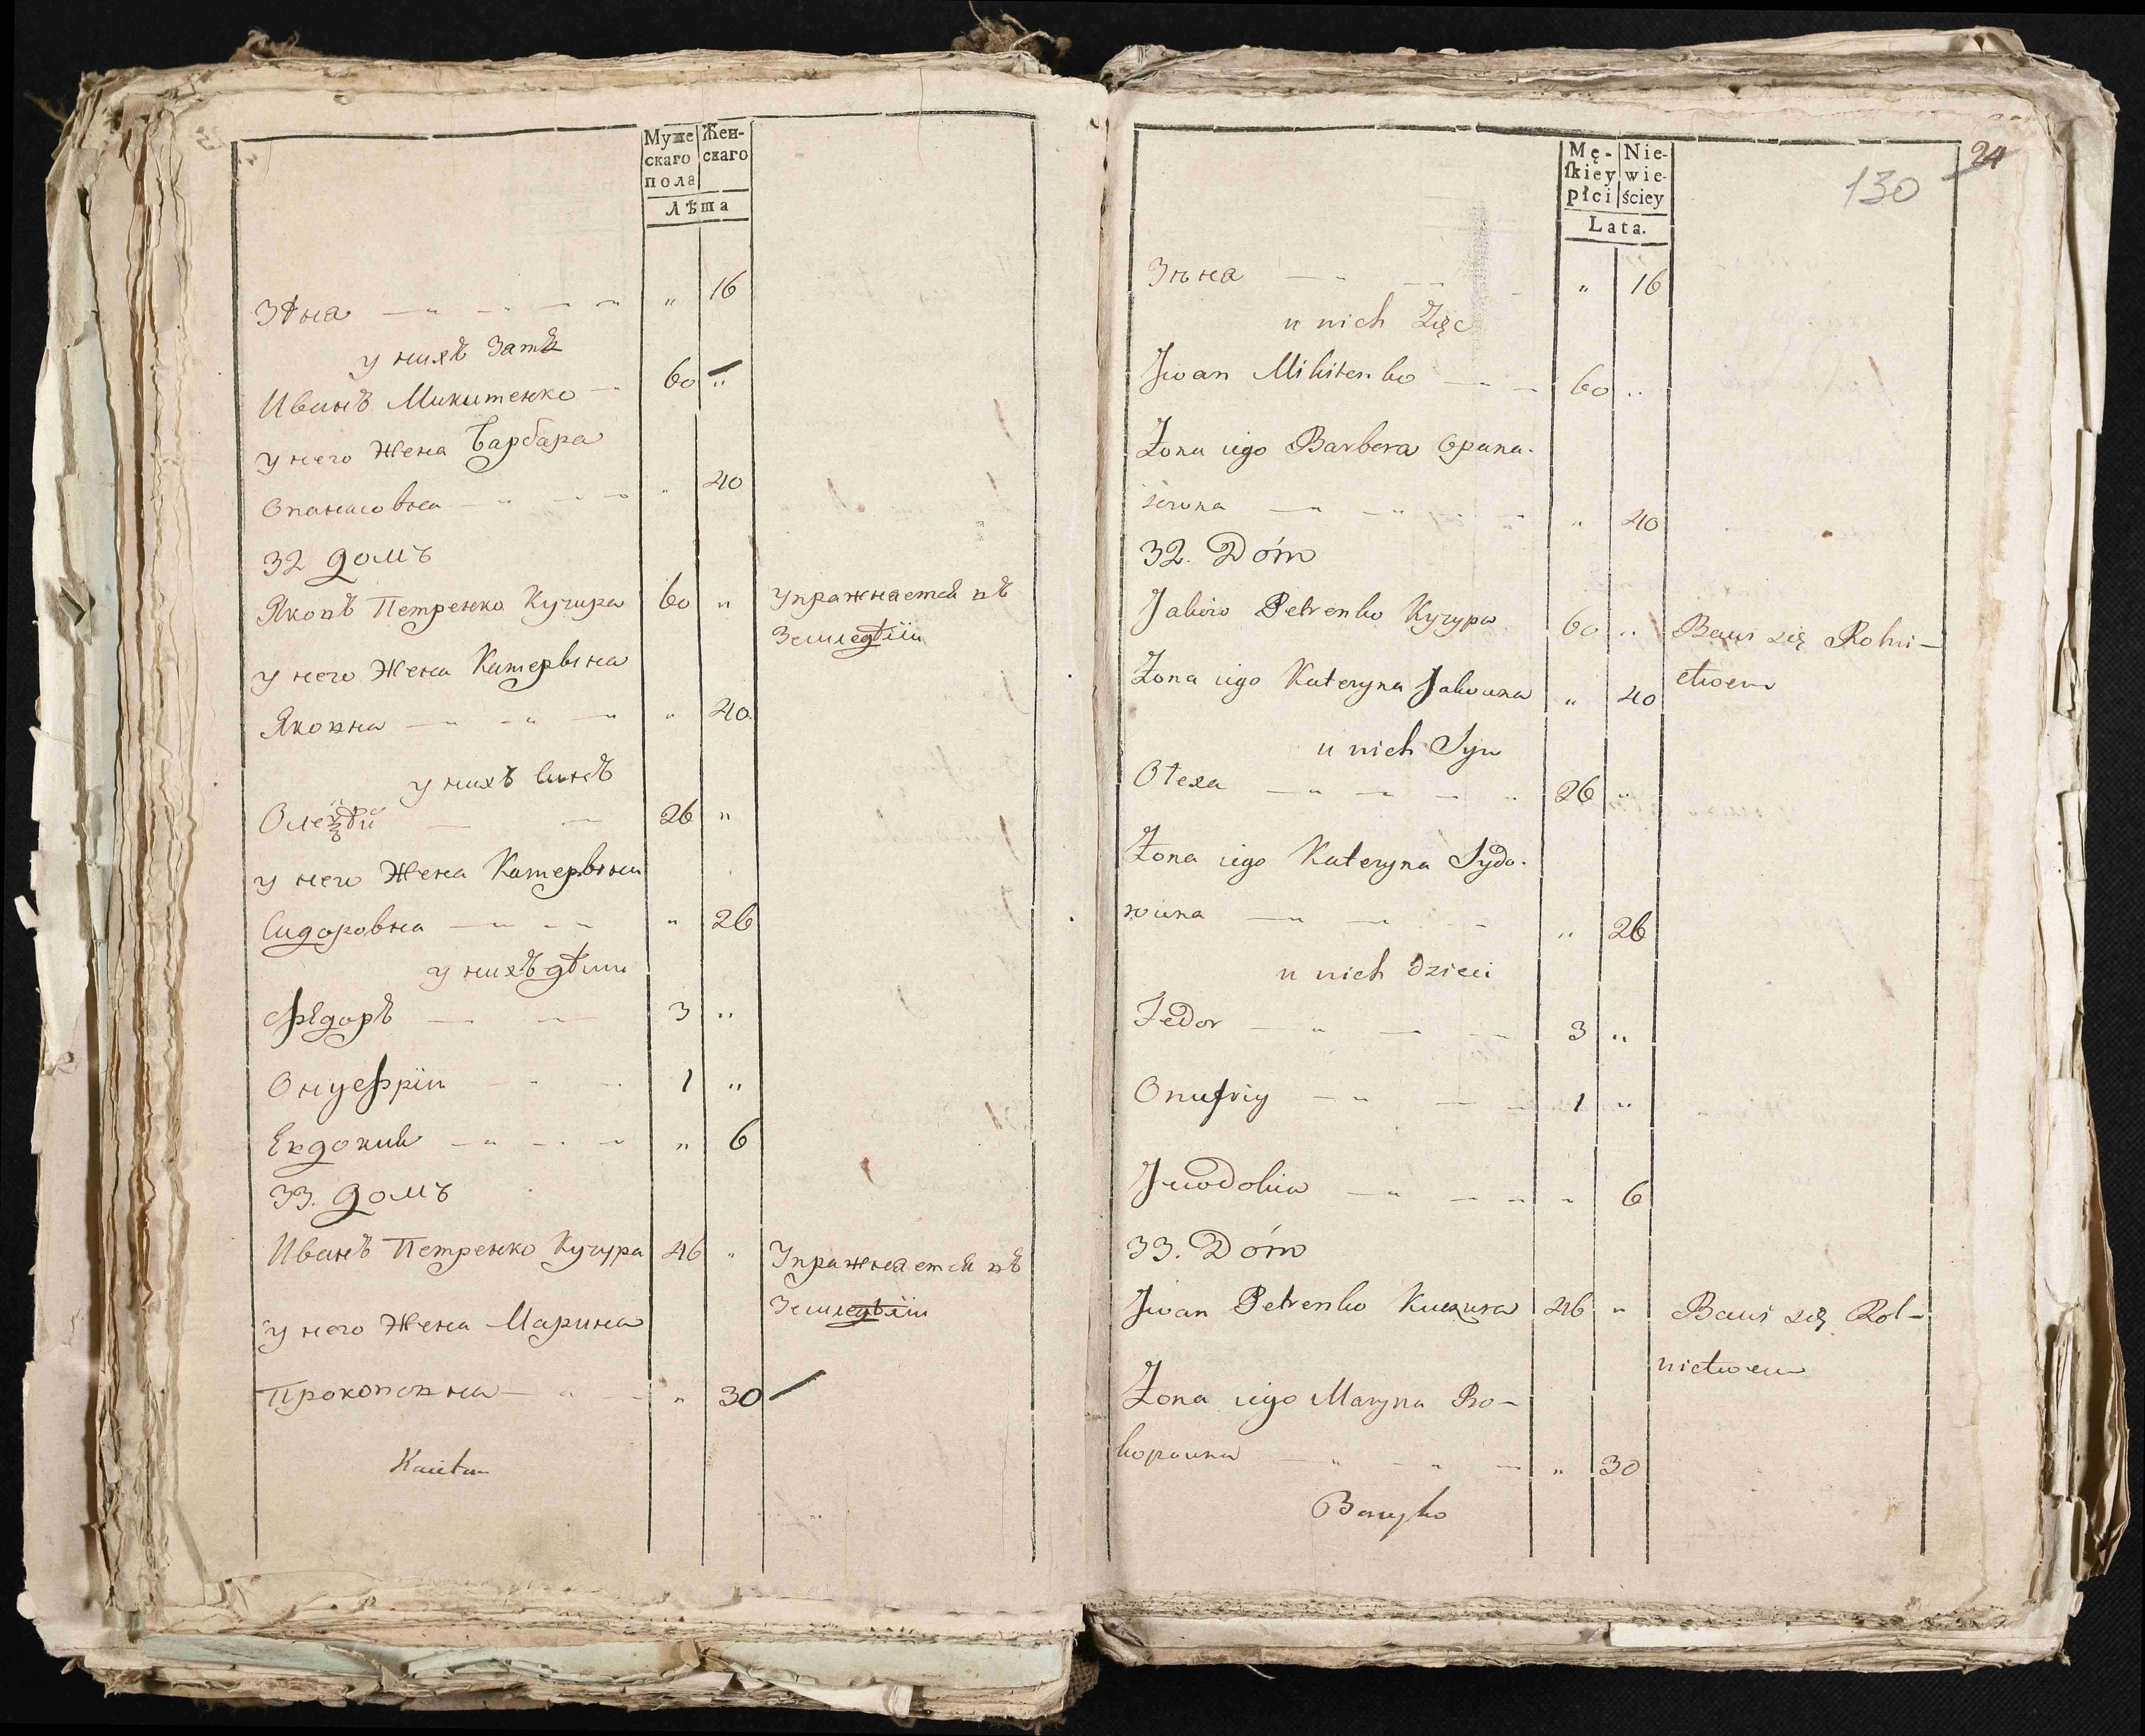 Муже Жен-
скаго скаго
пола
Лѣта
Зѣна 16
у нихъ Затъ
Иванъ Микитенко 60
у него Жена Барбара
Опанасовна 40
32 домъ
Яковъ Петренко Кучира 60 упражнается въ
Земледѣліи
у него Жена Катерына
Яковна 40
у нихъ Сынъ
26
у него Жена Катерына
Сидоровна 26
у нихъ дѣти
Фѣдоръ 3
Онуефрiи 1
Евдокия 6
33. домъ
Иванъ Петренко Кучура 46 Упражнается въ
Земледѣліи
у него Жена Марина
Прокоповна 30
Męſkiey płci Niewieściey
Lata.
24
130
Зѣна 16
u nich Zięc
Jwan Mikitenko 60
Żona iego Barbera Opana-
sowna 40
32. Dóm
Jakow Petrenko Кучура 60 Bawi się Rolni-
ctwem
Żona iego Kateryna Jakowna 40
u nich Syn
Olexa 26
Żona iego Kateryna Sydo-
rowna 26
u nich dzieci
Fedor 3
Onufriy 1
Jewdokia 6
33. Dóm
Jwan Petrenko Kuczura 46 Bawi się Rol-
nictwem
Żona iego Maryna Pro-
kopowna 30